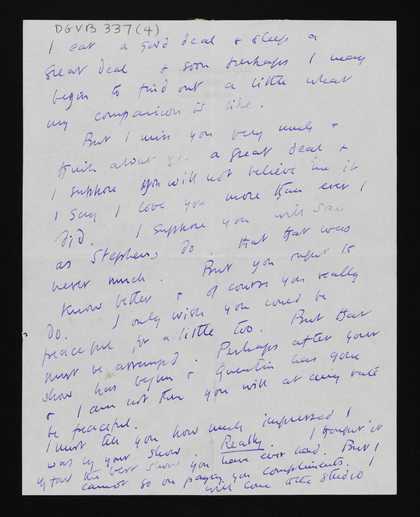 DGVB 337(4)
I eat a good deal & sleep a
great deal & soon perhaps I may
begin to find out a little what
my companion is like.
But I miss you very much &
think about you a great deal &
I suppose you will not believe me if
I say I love you more than ever I
did. I suppose you will say
as Stephens do that that was
never much. But you ought to
know better & of course you really
do. I only wish you could be
peaceful for a little too. But that
must be attempted. Perhaps after your
show has begun & Quentin has gone
& I am not there you will at any rate
be peaceful.
I must tell you how much impressed I
was by your show. Really. I thought it
by far the best show you have ever had. But I
cannot go on paying you compliments.
will come to the studio!